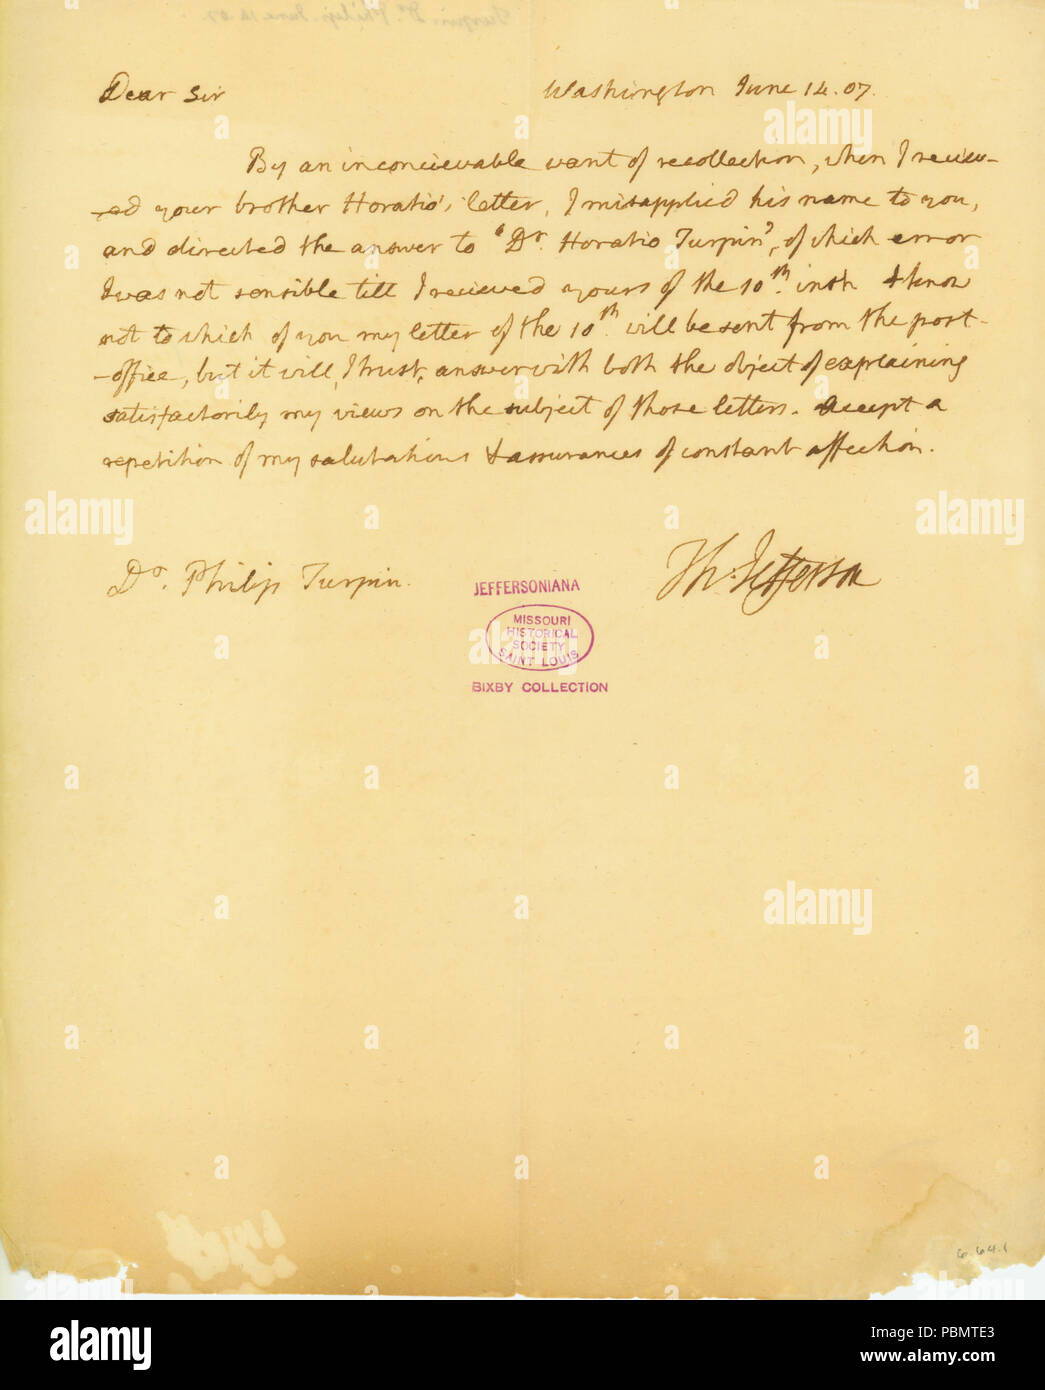 Dear Sir Washington June 14. 07.
By an inconcievable want of recollection, when I reciev-
-ed your brother Horatio's letter, I misapplied his name to you,
and directed the answer to "Dr. Horatio Turpin", of which error
I was not sensible till I recieved yours of the 10th. inst. I know
not to which of you my letter of the 10th. will be sent from the post-
-office, but it will, I trust, answer with both the object of explaining
satisfactorily my views on the subject of those letters. Accept a
repetition of my salutations & assurances of constant affection.
Dr. Philip Turpin.
Th: Jefferson
JEFFERSONIANA
MISSOURI
HISTORICAL
SOCIETY
SAINT LOUIS
BIXBY COLLECTION
6.64.1
alamy
Image ID: PBMTE3
www.alamy.com